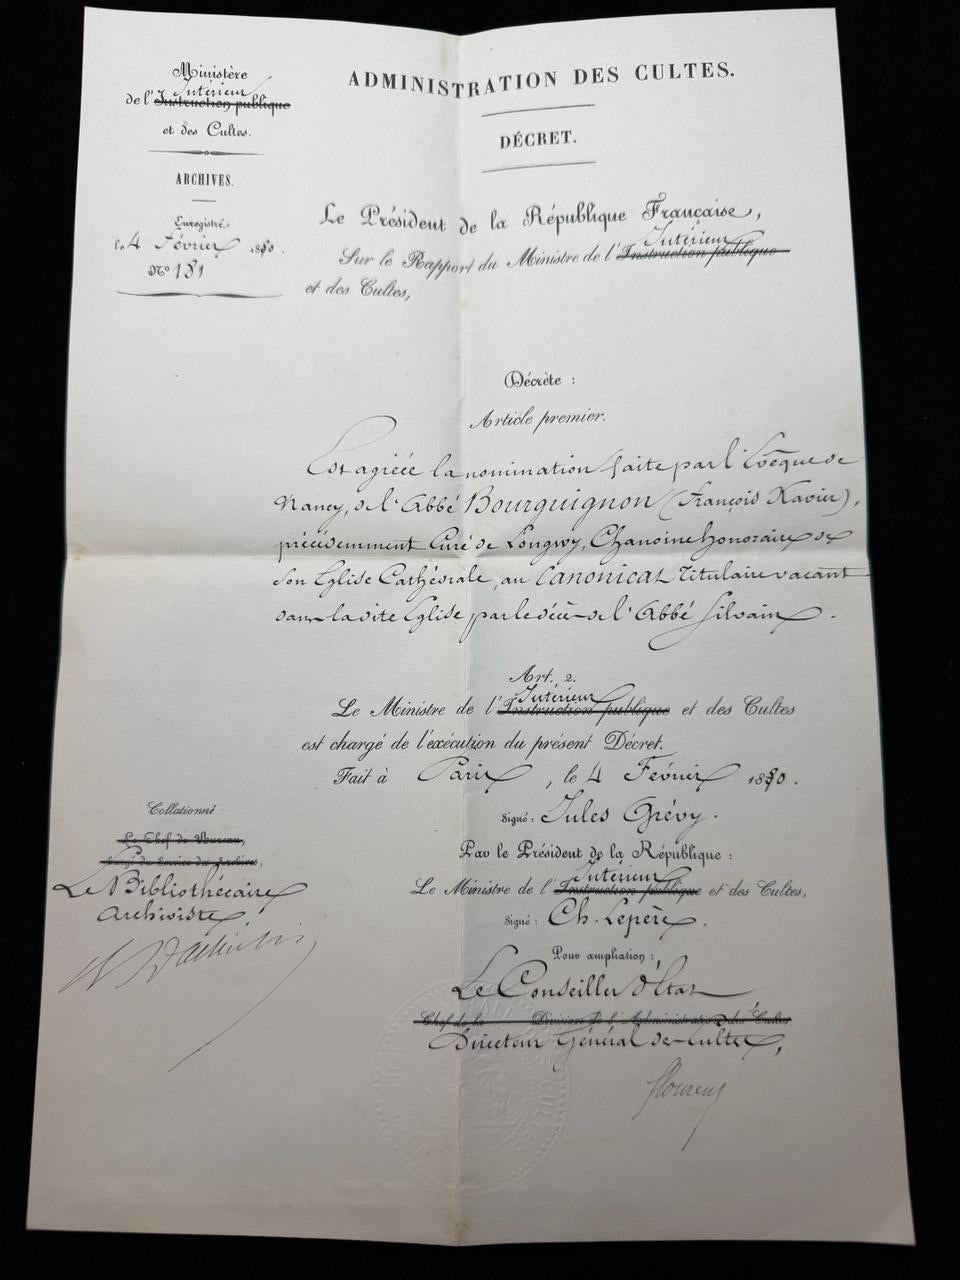 Ministère
Intérieur
de l'Instruction publique
et des Cultes.
ARCHIVES.
Enregistré
le 4 Février 1880.
No 181
ADMINISTRATION DES CULTES.
DÉCRET.
Le Président de la République Française,
Intérieur
Sur le Rapport du Ministre de l'Instruction publique
et des Cultes,
Décrète :
Article premier.
Est agréée la nomination faite par l'Evêque de
Nancy, de l'Abbé Bourguignon (François Xavier),
précédemment Curé de Longwy, Chanoine honoraire de
son Eglise Cathédrale, au Canonicat titulaire vacant
dans la dite Eglise par le décès de l'Abbé Silvain.
Art. 2.
Intérieur
Le Ministre de l'Instruction publique et des Cultes
est chargé de l'exécution du présent Décret.
Fait à Paris, le 4 Février 1880.
Signé : Jules Grévy.
Par le Président de la République :
Intérieur
Le Ministre de l'Instruction publique et des Cultes,
Signé : Ch. Lepère.
Pour ampliation :
Le Conseiller d'Etat
Chef de la Division de l'Administration des Cultes
Directeur Général des Cultes,
Flourens
Collationné :
Le Chef de Bureau,
chargé du Service des Archives,
Le Bibliothécaire
Archiviste,